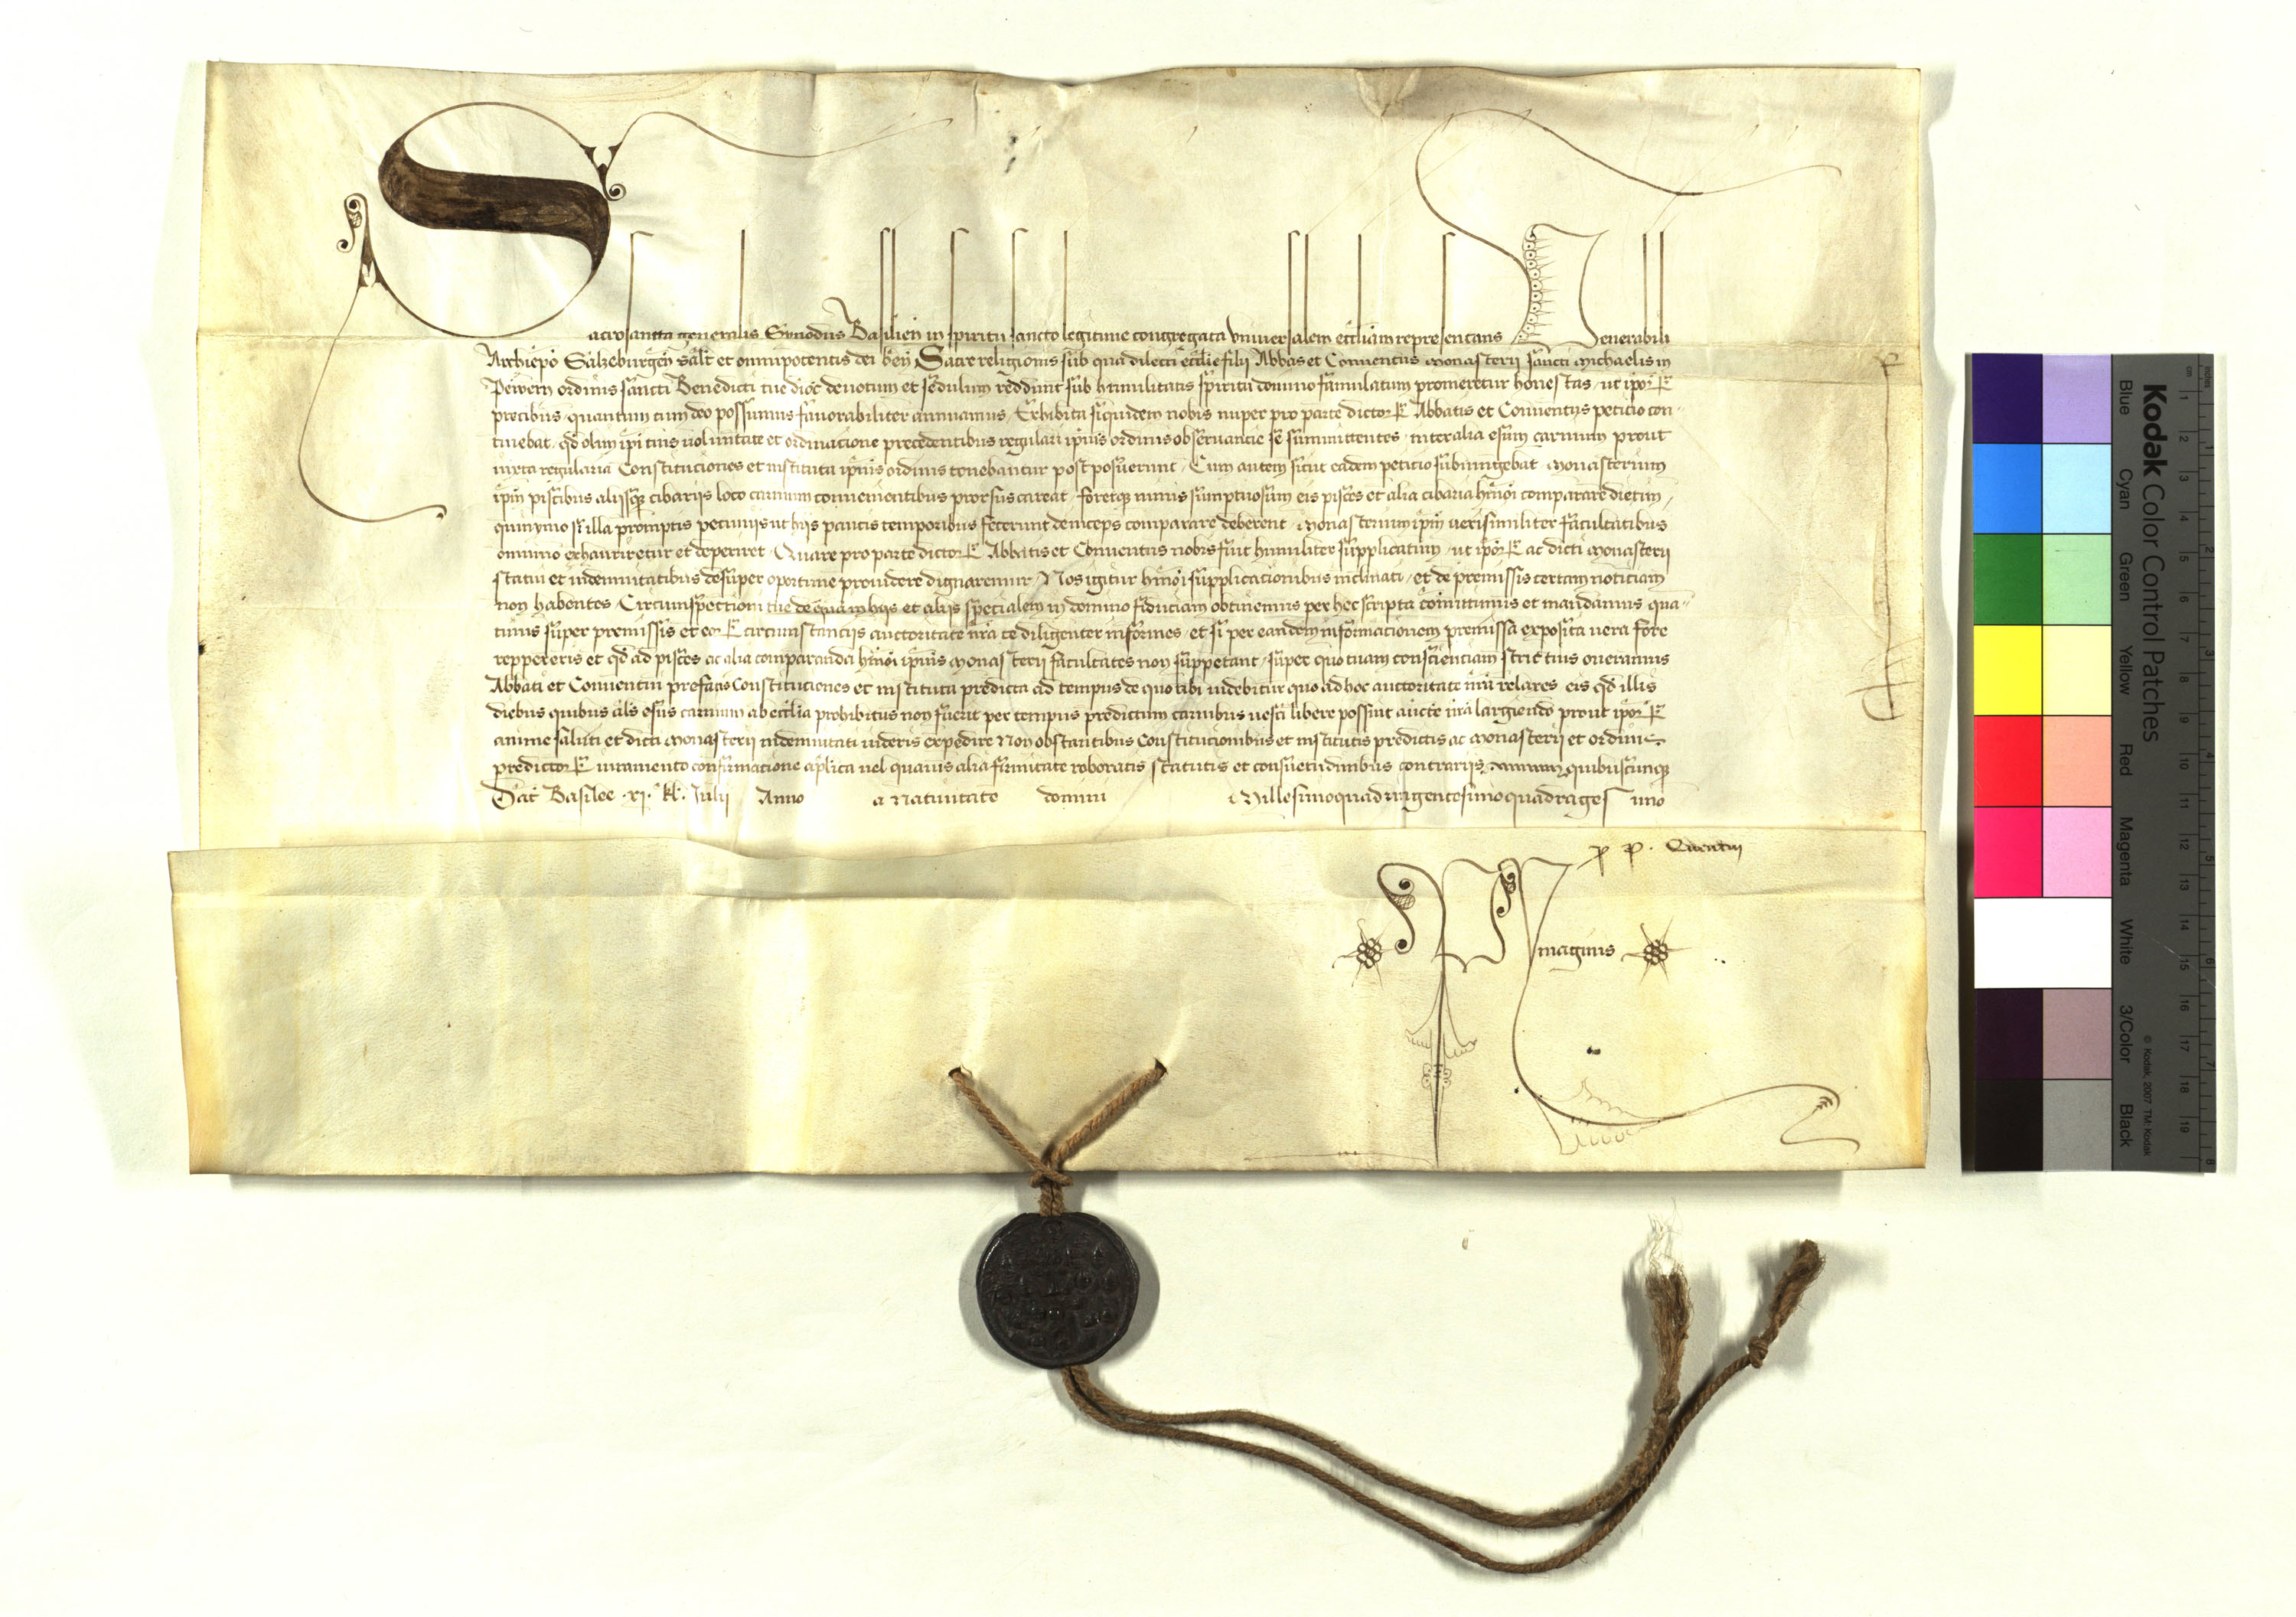 Sacrosancta generalis Synodus Basilien in spiritu sancto legitime congregata universalem eccliam representans Venerabili
Archiepo Salzeburgen salt et omnipotentis dei ben Sacre religionis sub qua dilecti ecclie filii Abbas et Conventus Monasterii sancti Michaelis in
Pewern ordinis sancti Benedicti tue dioc devotum et sedulum reddunt sub humilitatis spiritu domino famulatum promeretur honestas ut ipor
precibus quantum cum deo possumus favorabiliter annuamus Exhibita siquidem nobis nuper pro parte dictor Abbatis et Conventus peticio con-
tinebat qd olim ipi tuis voluntate et ordinacione precedentibus regulari ipius ordinis observancie se summittentes inter alia esum carnium prout
iuxta regularia Constituciones et instituta ipius ordinis tenebantur postposuerunt Cum autem sicut eadem peticio subiungebat Monasterium
ipm piscibus aliisq cibariis loco carnium convenientibus prorsus careat foretq nimis sumptuosum eis pisces et alia cibaria hmoi comparare dietim
quinymo si illa promptis pecuniis ut hiis paucis temporibus fecerunt deinceps comparare deberent Monasterium ipm verisimiliter facultatibus
omnino exhauriretur et deperiret Quare pro parte dictor Abbatis et Conventus nobis fuit humiliter supplicatum ut ipor ac dicti Monasterii
statui et indemnitatibus desuper oportune providere dignaremur Nos igitur hmoi supplicacionibus inclinati et de premissis certam noticiam
non habentes Circumspectioni tue de qua in hiis et aliis specialem in domino fiduciam obtinemus per hec scripta comittimus et mandamus qua-
tinus super premissis et eor circumstanciis auctoritate nra te diligenter informes et si per eandem informacionem premissa exposita vera fore
reppereris et qd ad pisces ac alia comparanda hmoi ipius Monasterii facultates non suppetant super quo tuam conscienciam strictius oneramus
Abbati et Conventui prefatis Constituciones et instituta predicta ad tempus de quo tibi videbitur quo ad hoc auctoritate nra relaxes eis qd illis
diebus quibus als esus carnium ab ecclia prohibitus non fuerit per tempus predictum carnibus vesci libere possint aucte nra largiendo prout ipor
anime saluti et dicti Monasterii indemnitati videris expedire Non obstantibus Constitucionibus et institutis predictis ac Monasterii et ordinis
predictor iuramento confirmacione aplica vel quavis alia firmitate roboratis statutis et consuetudinibus contrariis quibuscunq
Dat Basilee xi kl Julii Anno a Nativitate domini Millesimoquadringentesimoquadragesimo
p p. Quentin
maginis
Kodak Color Control Patches
© Kodak, 2007 TM: Kodak
Blue Cyan Green Yellow Red Magenta White 3/Color Black
inches 1 2 3 4 5 6 7 8
cm 1 2 3 4 5 6 7 8 9 10 11 12 13 14 15 16 17 18 19